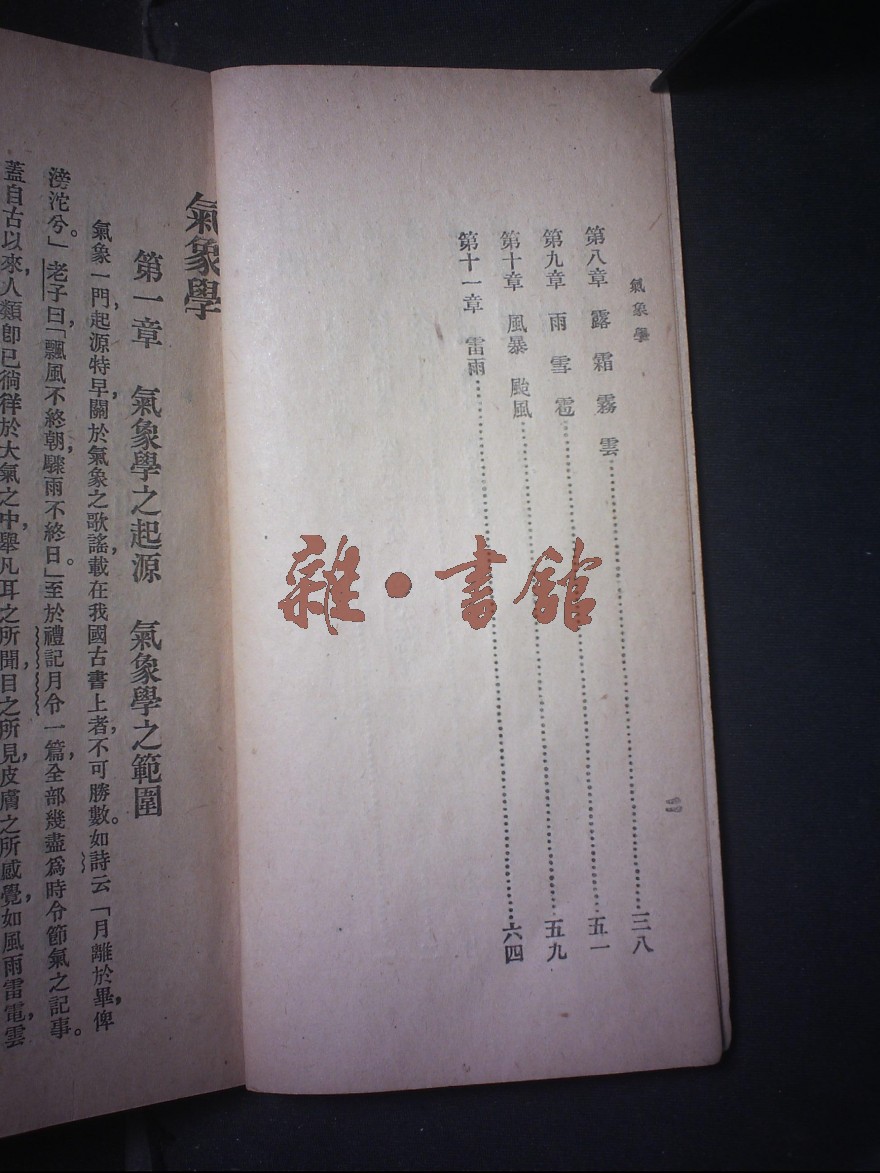 氣象學
第八章　露　霜　霧　雲……三八
第九章　雨　雪　雹……五一
第十章　風暴　颱風……五九
第十一章　雷雨……六四
二
雜·書館
氣象學
第一章　氣象學之起源　氣象學之範圍
氣象一門，起源特早，關於氣象之歌謠，載在我國古書上者，不可勝數。如詩云「月離於畢，俾
滂沱兮。」老子曰，「飄風不終朝，驟雨不終日。」至於禮記月令一篇，全部幾盡爲時令節氣之記事。
蓋自古以來，人類卽已徜徉於大氣之中，舉凡耳之所聞，目之所見，皮膚之所感覺，如風雨雷電，雲